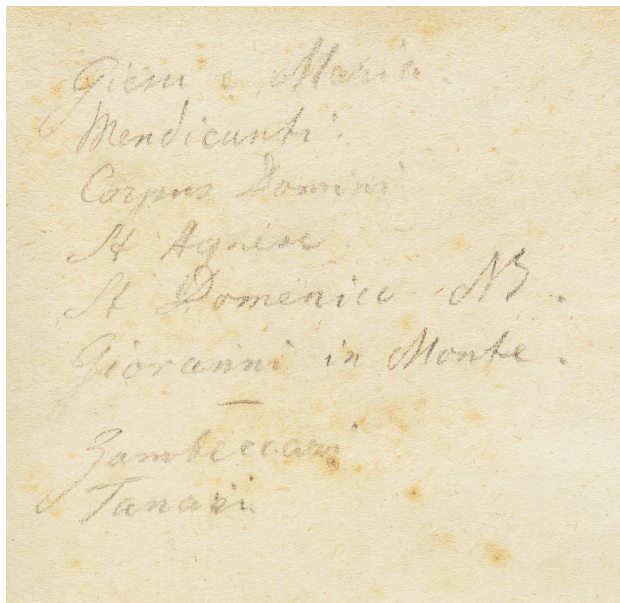 Giesu e Maria.
Mendicanti.
Corpus Domini
St Agnese
St Domenico NB.
Giovanni in Monte.
Zambeccari
Tanari.